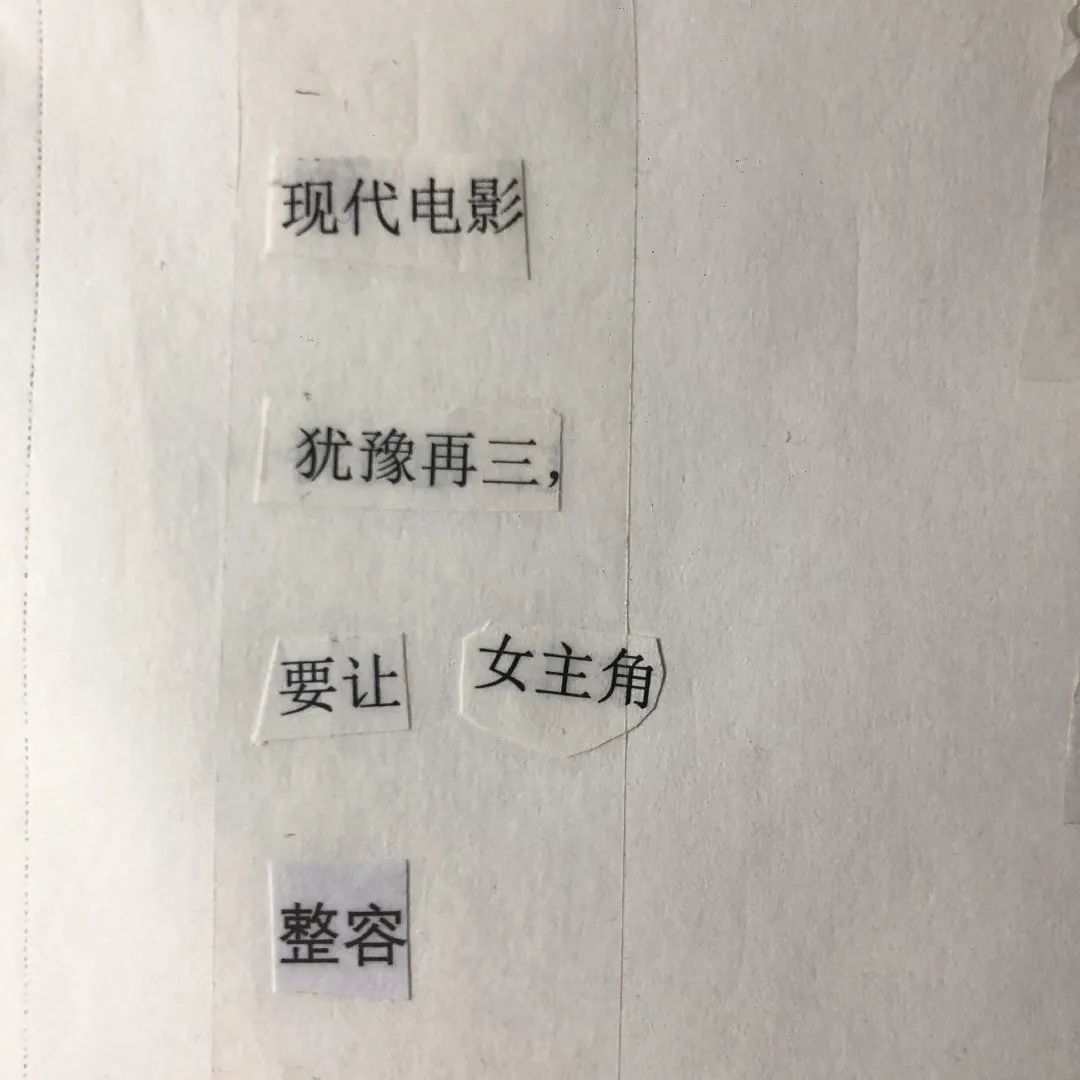 现代电影
犹豫再三，
要让 女主角
整容